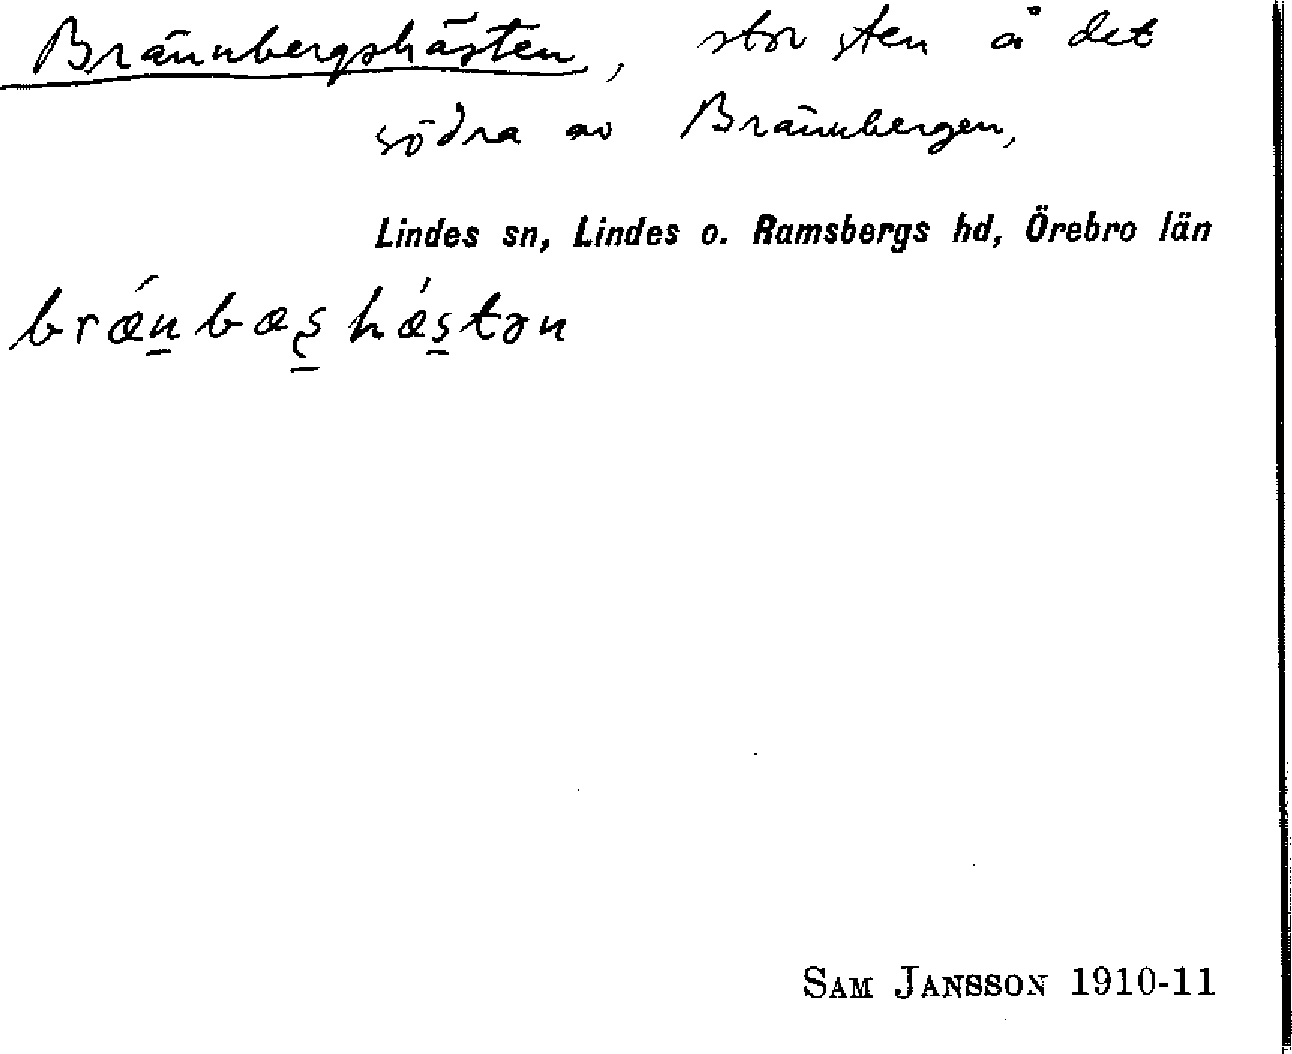 Brännbergshästen, stor sten å det
södra av Brännbergen,
Lindes sn, Lindes o. Ramsbergs hd, Örebro län
brǽn̲bæʂ̲hǽs̲tən
SAM JANSSON 1910-11